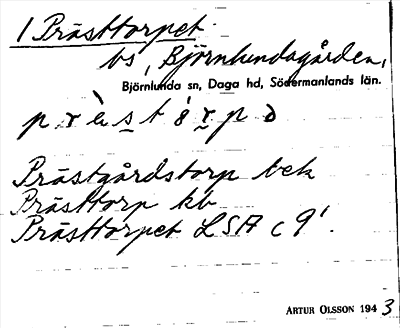 1 Prästtorpet
bs, Björnlundagården,
Björnlunda sn, Daga hd, Södermanlands län.
Prästgårdstorp bek
Prästtorp kb
Prästtorpet LSA c 9'.
ARTUR OLSSON 1943